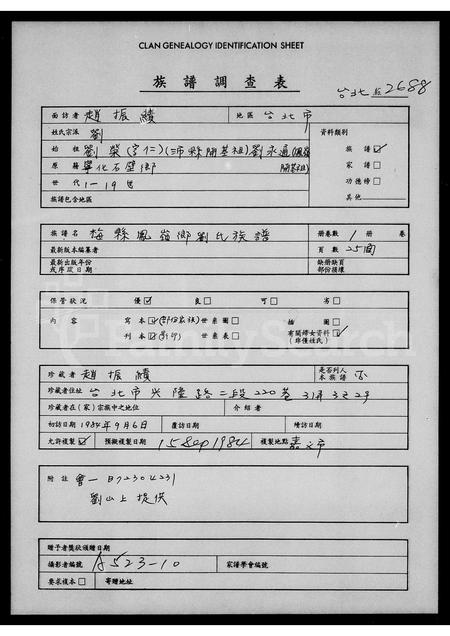 CLAN GENEALOGY IDENTIFICATION SHEET
族譜調查表
台北 2688
面訪者 趙振績 地區 台北市
姓氏宗派 劉 資料類別
始祖 劉榮(字仁)(沛縣開基祖)劉永通 族譜☑
開基祖)
原籍 寧化石壁鄉 家譜□
世代 1-19世 功德榜□
族譜包含地區 其他
族譜名 梅縣鳳嶺鄉劉氏族譜 冊卷數 1 冊 卷
最新版本編纂者 頁數 25面
最新出版年份 缺冊缺頁
或序跋日期 部份損壞
保管狀況 優☑ 良□ 可□ 劣□
內容 寫本☑ 世系圖□ 插圖□
刊本☑(影印) 世系表□ 有關婦女資料☑
(非僅姓氏)
珍藏者 趙振績 是否列入本族譜 否
珍藏者住址 台北市興隆路二段220巷31弄3之2号
珍藏者在(家)宗族中之地位 介紹者
初訪日期 1984年9月6日 覆訪日期 續訪日期
允許複製☑ 預擬複製日期 15 Sep 1984 複製地點
附註 會一 日72304231
劉山上提供
贈予者獎狀頒贈日期
攝影者編號 A523-10 家譜學會編號
要求複本□ 寄贈地址
FamilySearch